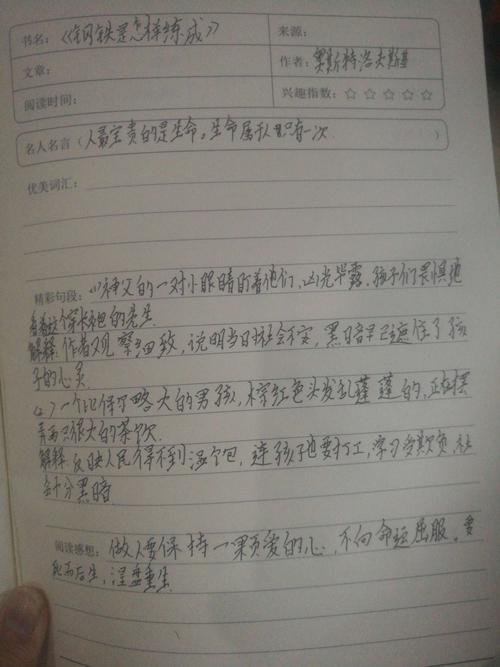 书名：《钢铁是怎样练成》
来源：
文章：
作者：奥斯特洛夫斯基
阅读时间：
兴趣指数：☆ ☆ ☆ ☆ ☆
名人名言（人最宝贵的是生命。生命属于人只有一次）
优美词汇：
精彩句段：(1)神父的一对小眼睛盯着他们，凶光毕露，孩子们畏惧地
看着这个穿长袍的先生
解释：作者观察细致，说明当日社会不安，黑暗早已遮住了孩
子的心灵
(2)一个比保尔略大的男孩，棕红色头发乱蓬蓬的，正在摆
弄两只很大的茶炊
解释 反映人民得不到温饱，连孩子也要打工，学习受欺负 社
会十分黑暗
阅读感想：做人要保持一颗爱的心，不向命运屈服。要
死而后生，涅盘重生